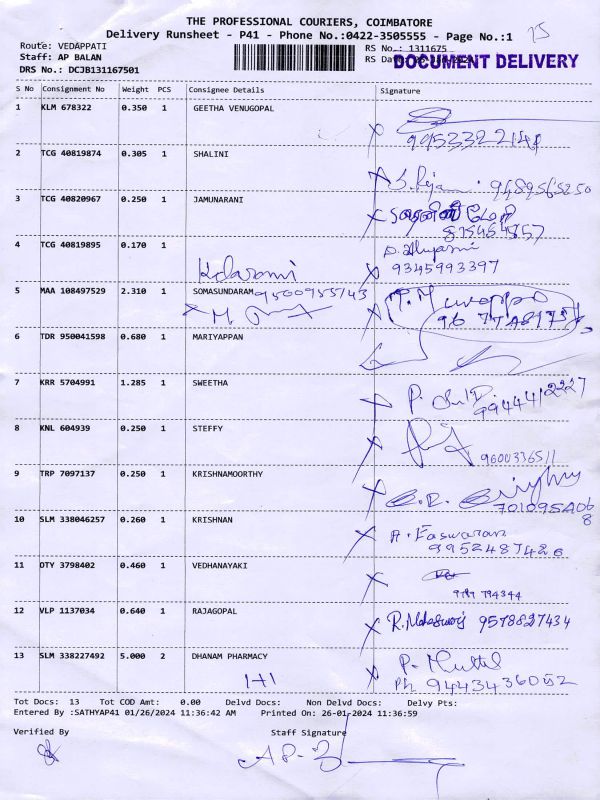 THE PROFESSIONAL COURIERS, COIMBATORE
Delivery Runsheet - P41 - Phone No.:0422-3505555 - Page No.:1
25
Route: VEDAPPATI
RS No.: 1311675
Staff: AP BALAN
RS Da
DOCUMENT DELIVERY
DRS No.: DCJB131167501
S No Consignment No Weight PCS Consignee Details Signature
1 KLM 678322 0.350 1 GEETHA VENUGOPAL
2 TCG 40819874 0.305 1 SHALINI
9489565250
3 TCG 40820967 0.250 1 JAMUNARANI
4 TCG 40819895 0.170 1
9345993397
5 MAA 108497529 2.310 1 SOMASUNDARAM 9500955743
6 TDR 950041598 0.680 1 MARIYAPPAN
7 KRR 5704991 1.285 1 SWEETHA
9444412227
8 KNL 604939 0.250 1 STEFFY
9600336511
9 TRP 7097137 0.250 1 KRISHNAMOORTHY
10 SLM 338046257 0.260 1 KRISHNAN
A. Easwaran
9952487426
11 OTY 3798402 0.460 1 VEDHANAYAKI
12 VLP 1137034 0.640 1 RAJAGOPAL
R. Maheswari 9578827434
13 SLM 338227492 5.000 2 DHANAM PHARMACY
1+1
Ph 9443436052
Tot Docs: 13 Tot COD Amt: 0.00 Delvd Docs: Non Delvd Docs: Delvy Pts:
Entered By :SATHYAP41 01/26/2024 11:36:42 AM Printed On: 26-01-2024 11:36:59
Verified By Staff Signature